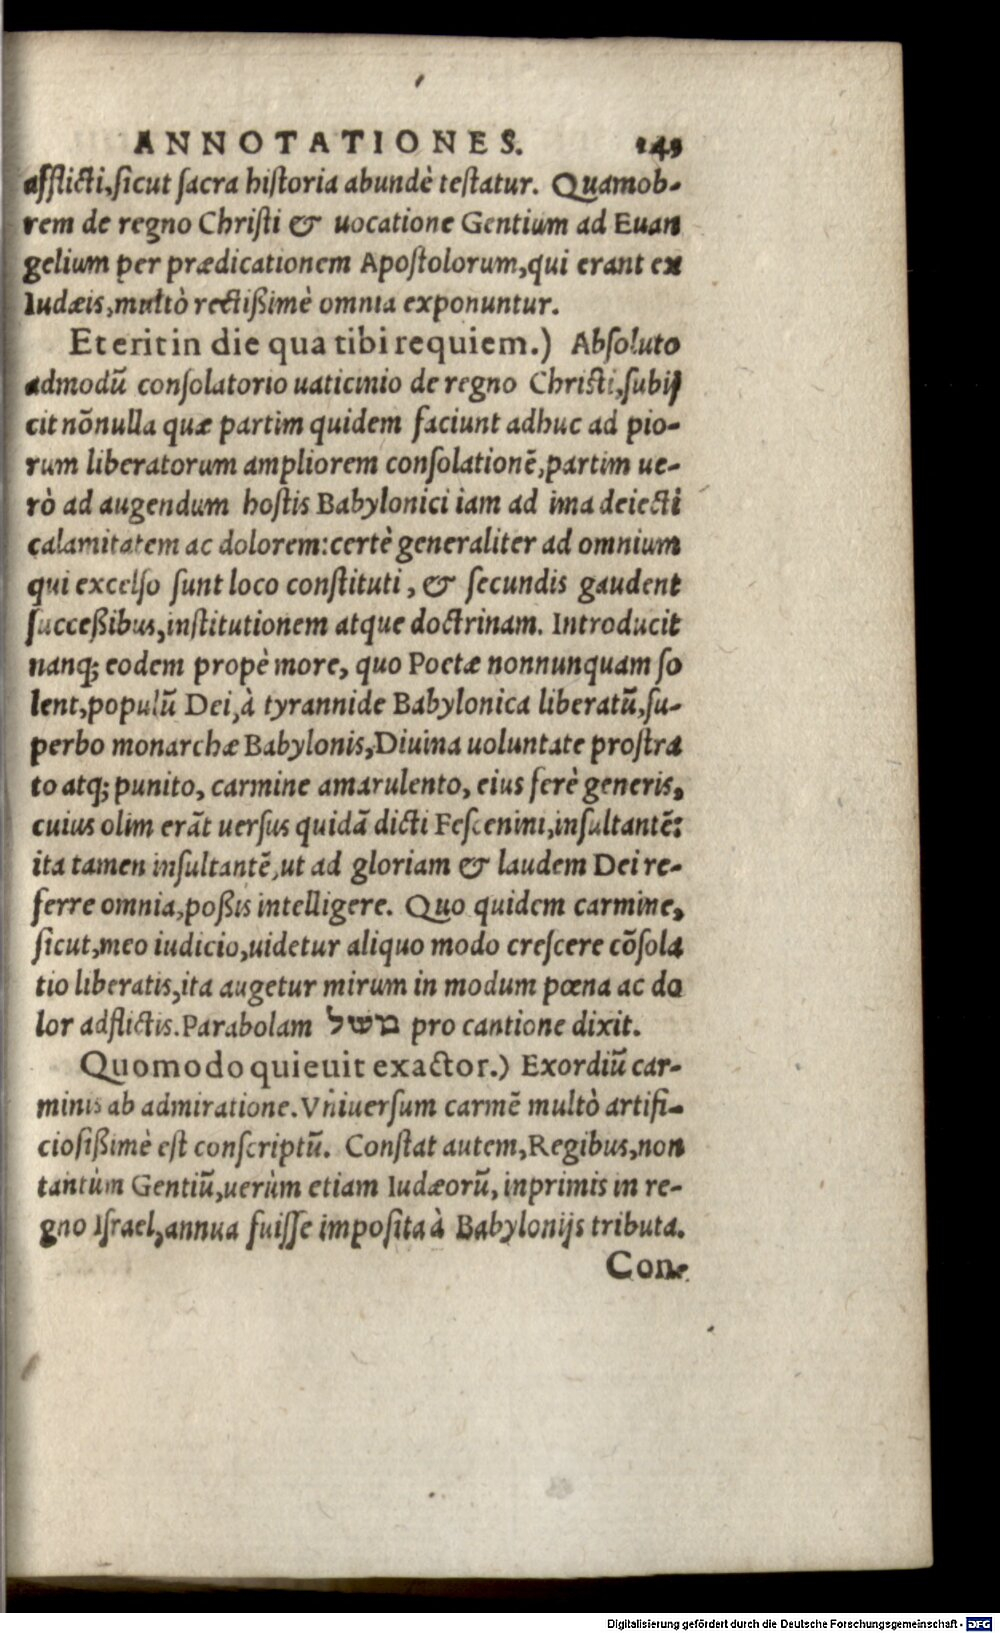 ANNOTATIONES. 149
afflicti, sicut sacra historia abundè testatur. Quamob-
rem de regno Christi & uocatione Gentium ad Euan
gelium per prædicationem Apostolorum, qui erant ex
Iudæis, multò rectißimè omnia exponuntur.
Et erit in die qua tibi requiem.) Absoluto
admodũ consolatorio uaticinio de regno Christi, subij
cit nõnulla quæ partim quidem faciunt adhuc ad pio-
rum liberatorum ampliorem consolationẽ, partim ue-
rò ad augendum hostis Babylonici iam ad ima deiecti
calamitatem ac dolorem: certè generaliter ad omnium
qui excelso sunt loco constituti, & secundis gaudent
succeßibus, institutionem atque doctrinam. Introducit
nanq; eodem propè more, quo Poetæ nonnunquam so
lent, populũ Dei, à tyrannide Babylonica liberatũ, su-
perbo monarchæ Babylonis, Diuina uoluntate prostra
to atq; punito, carmine amarulento, eius ferè generis,
cuius olim erãt uersus quidã dicti Fescenini, insultantẽ:
ita tamen insultantẽ, ut ad gloriam & laudem Dei re-
ferre omnia, poßis intelligere. Quo quidem carmine,
sicut, meo iudicio, uidetur aliquo modo crescere cõsola
tio liberatis, ita augetur mirum in modum pœna ac do
lor adflictis. Parabolam משל pro cantione dixit.
Quomodo quieuit exactor.) Exordiũ car-
minis ab admiratione. Vniuersum carmẽ multò artifi-
ciosißimè est conscriptũ. Constat autem, Regibus, non
tantùm Gentiũ, uerùm etiam Iudæorũ, inprimis in re-
gno Israel, annua fuisse imposita à Babylonijs tributa.
Con-
Digitalisierung gefördert durch die Deutsche Forschungsgemeinschaft - DFG